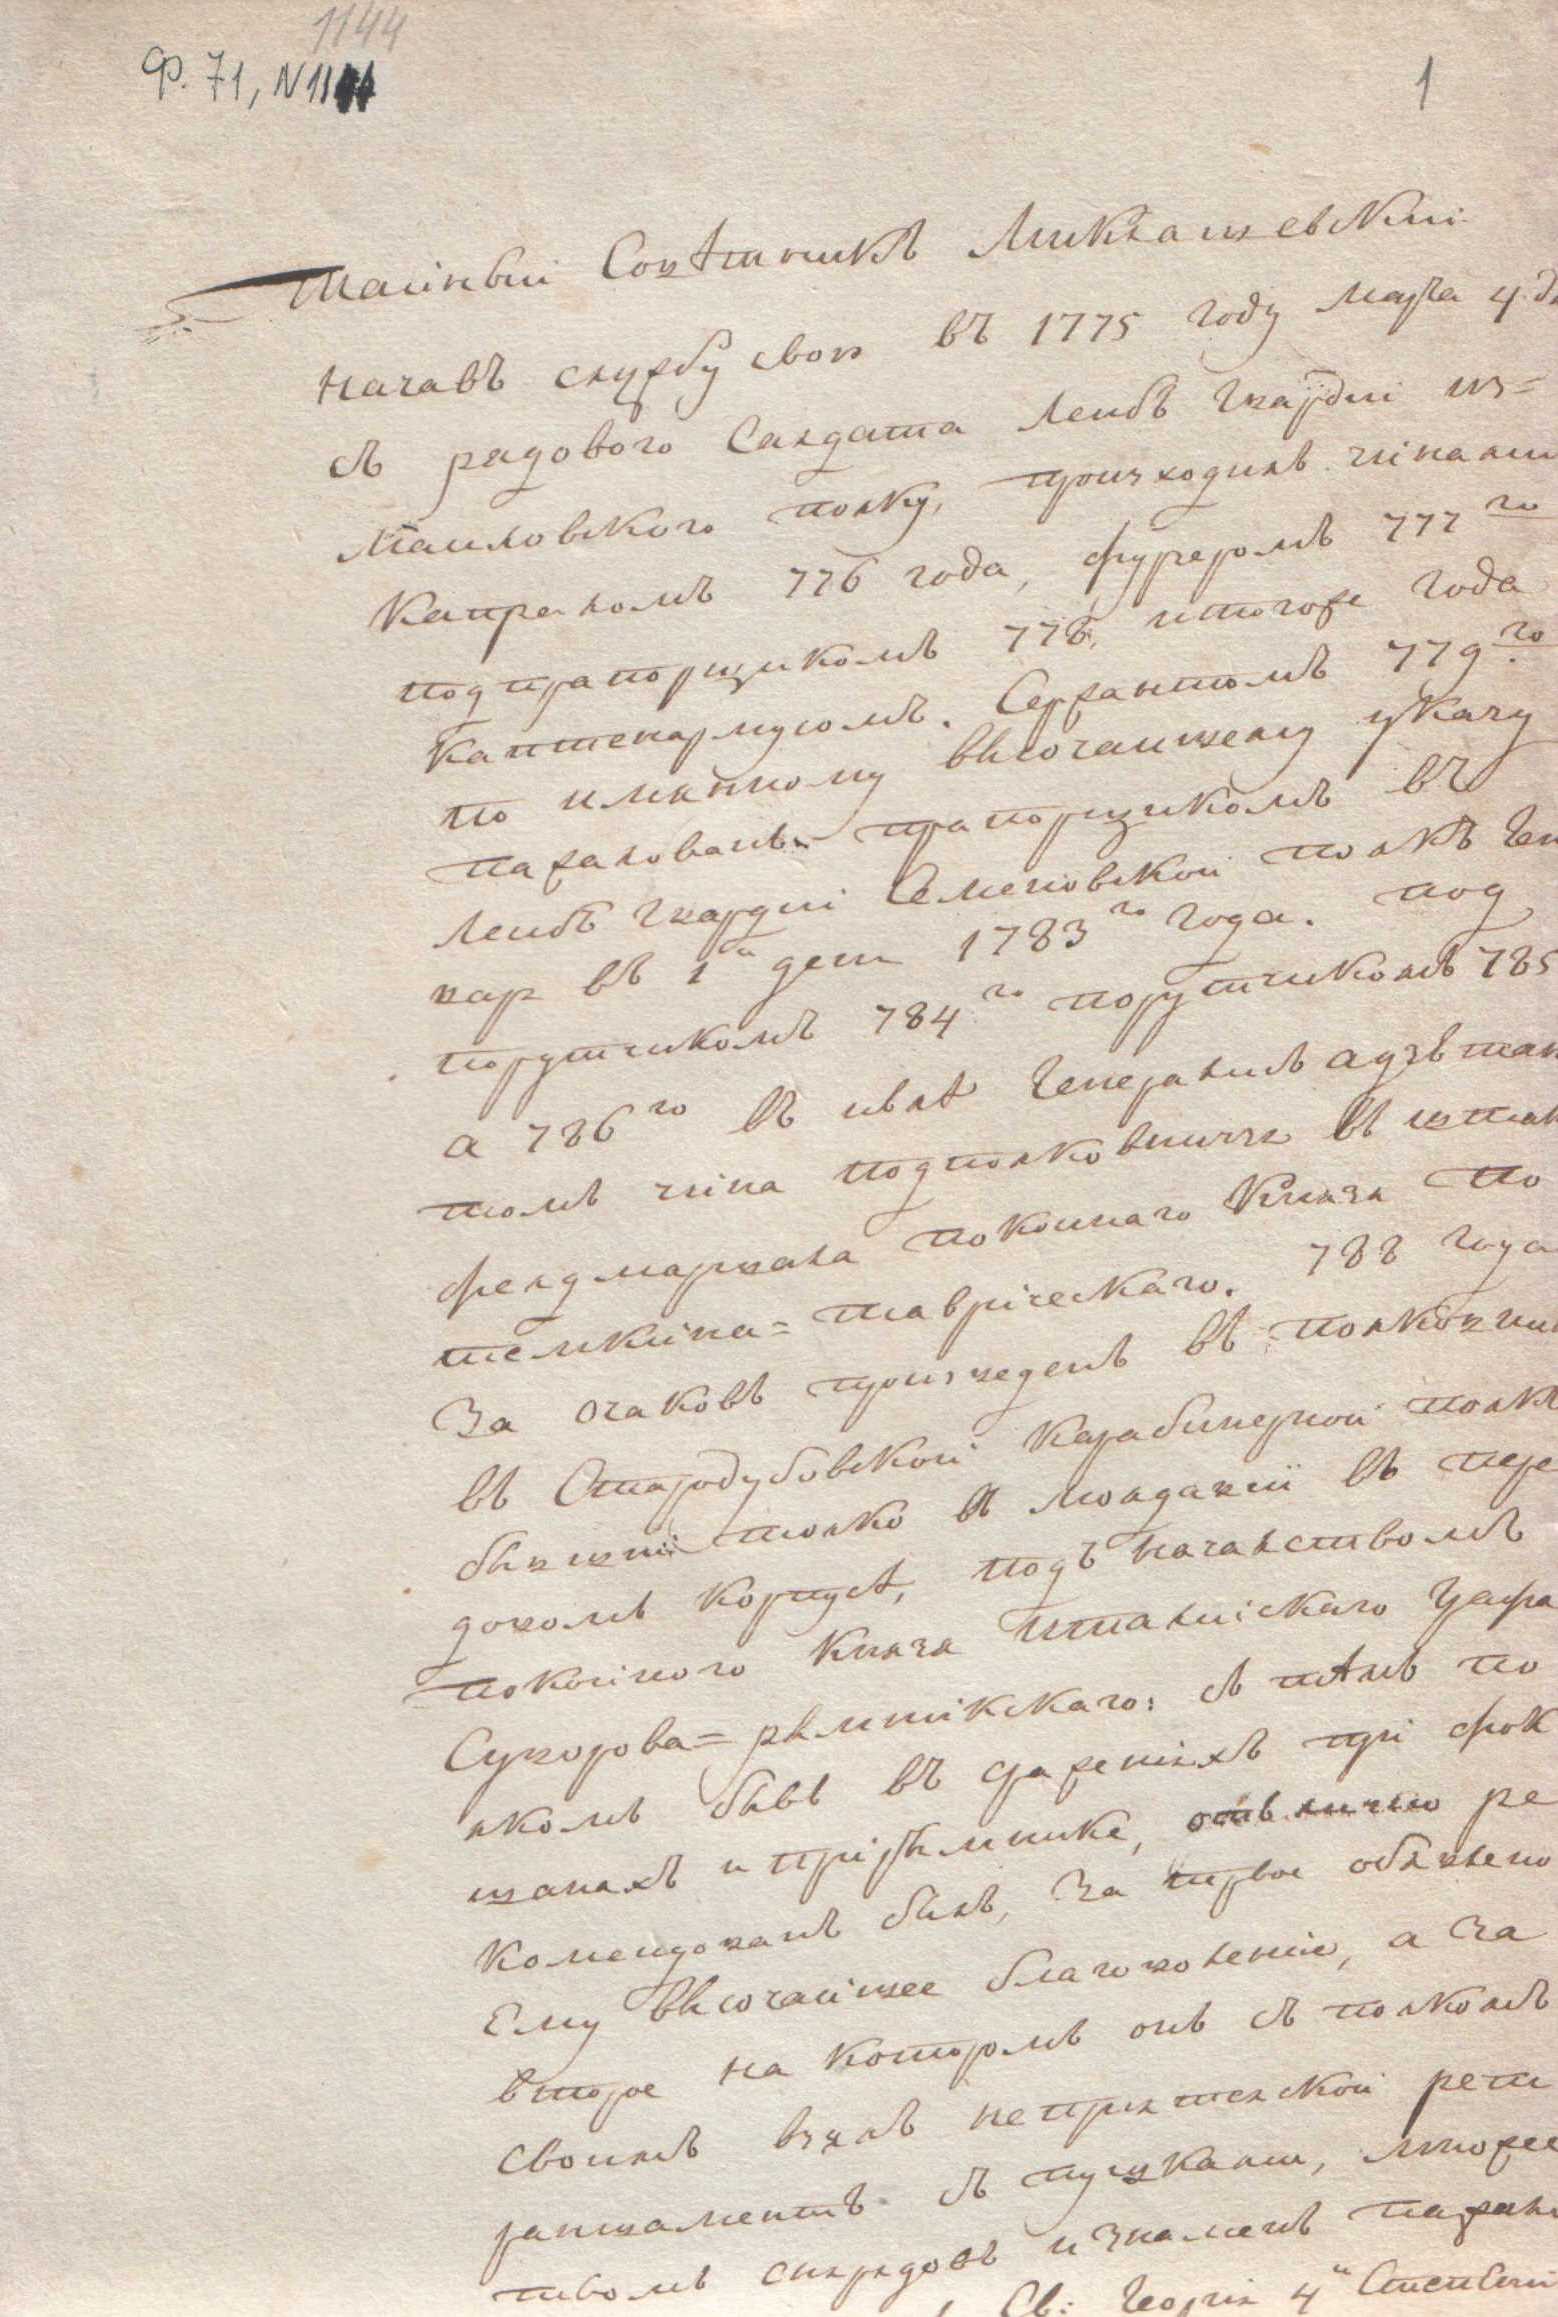 1144
Ф. 71, N 11
1
Тайный Совѣтникъ Миклашевскій
Начавъ службу свою въ 1775 году Марта 4. д
съ рядового Салдата Лейбъ Гвардіи из=
маиловского полку, произходилъ чинами
Капраломъ 776 года, фурьеромъ 777 го
подпрапорщикомъ 778, итогоже года
Каптенармусомъ. Сержантомъ 779 го
по имянному высочайшему указу
пажалованъ прапорщикомъ въ
Лейбъ гвардіи Семеновской полкъ Ген
вар въ 1 й день 1783 го года. под
порутчикомъ 784 го порутчикомъ 785
а 786 го въ іюлѣ Генералсъ адъютан
томъ чина подполковничья въ штап
фелдмаршала покойнаго Князя По
темкина=таврическаго. 788 года
За очаковъ произведенъ въ полковни
въ Стародубовской Карабинерной полкъ
бывшій толко въ молдавіи въ пере
довомъ Корпусѣ, подъ началствомъ
покойного Князя италійскаго Графа
Суворова=рымникскаго: съ тѣмъ по
лкомъ бывъ въ сраженіяхъ при фок
шанахъ и при рымнике, отлично ре
комендованъ былъ, За первое объявлено
Ему высочайшее благоволеніе, а За
второе на которомъ онъ съ полкомъ
своимъ взялъ неприятелской рети
раншаментъ съ пушками, множес
твомъ снарядовъ и Знаменъ пажал
Св: Георгія 4 й Степени